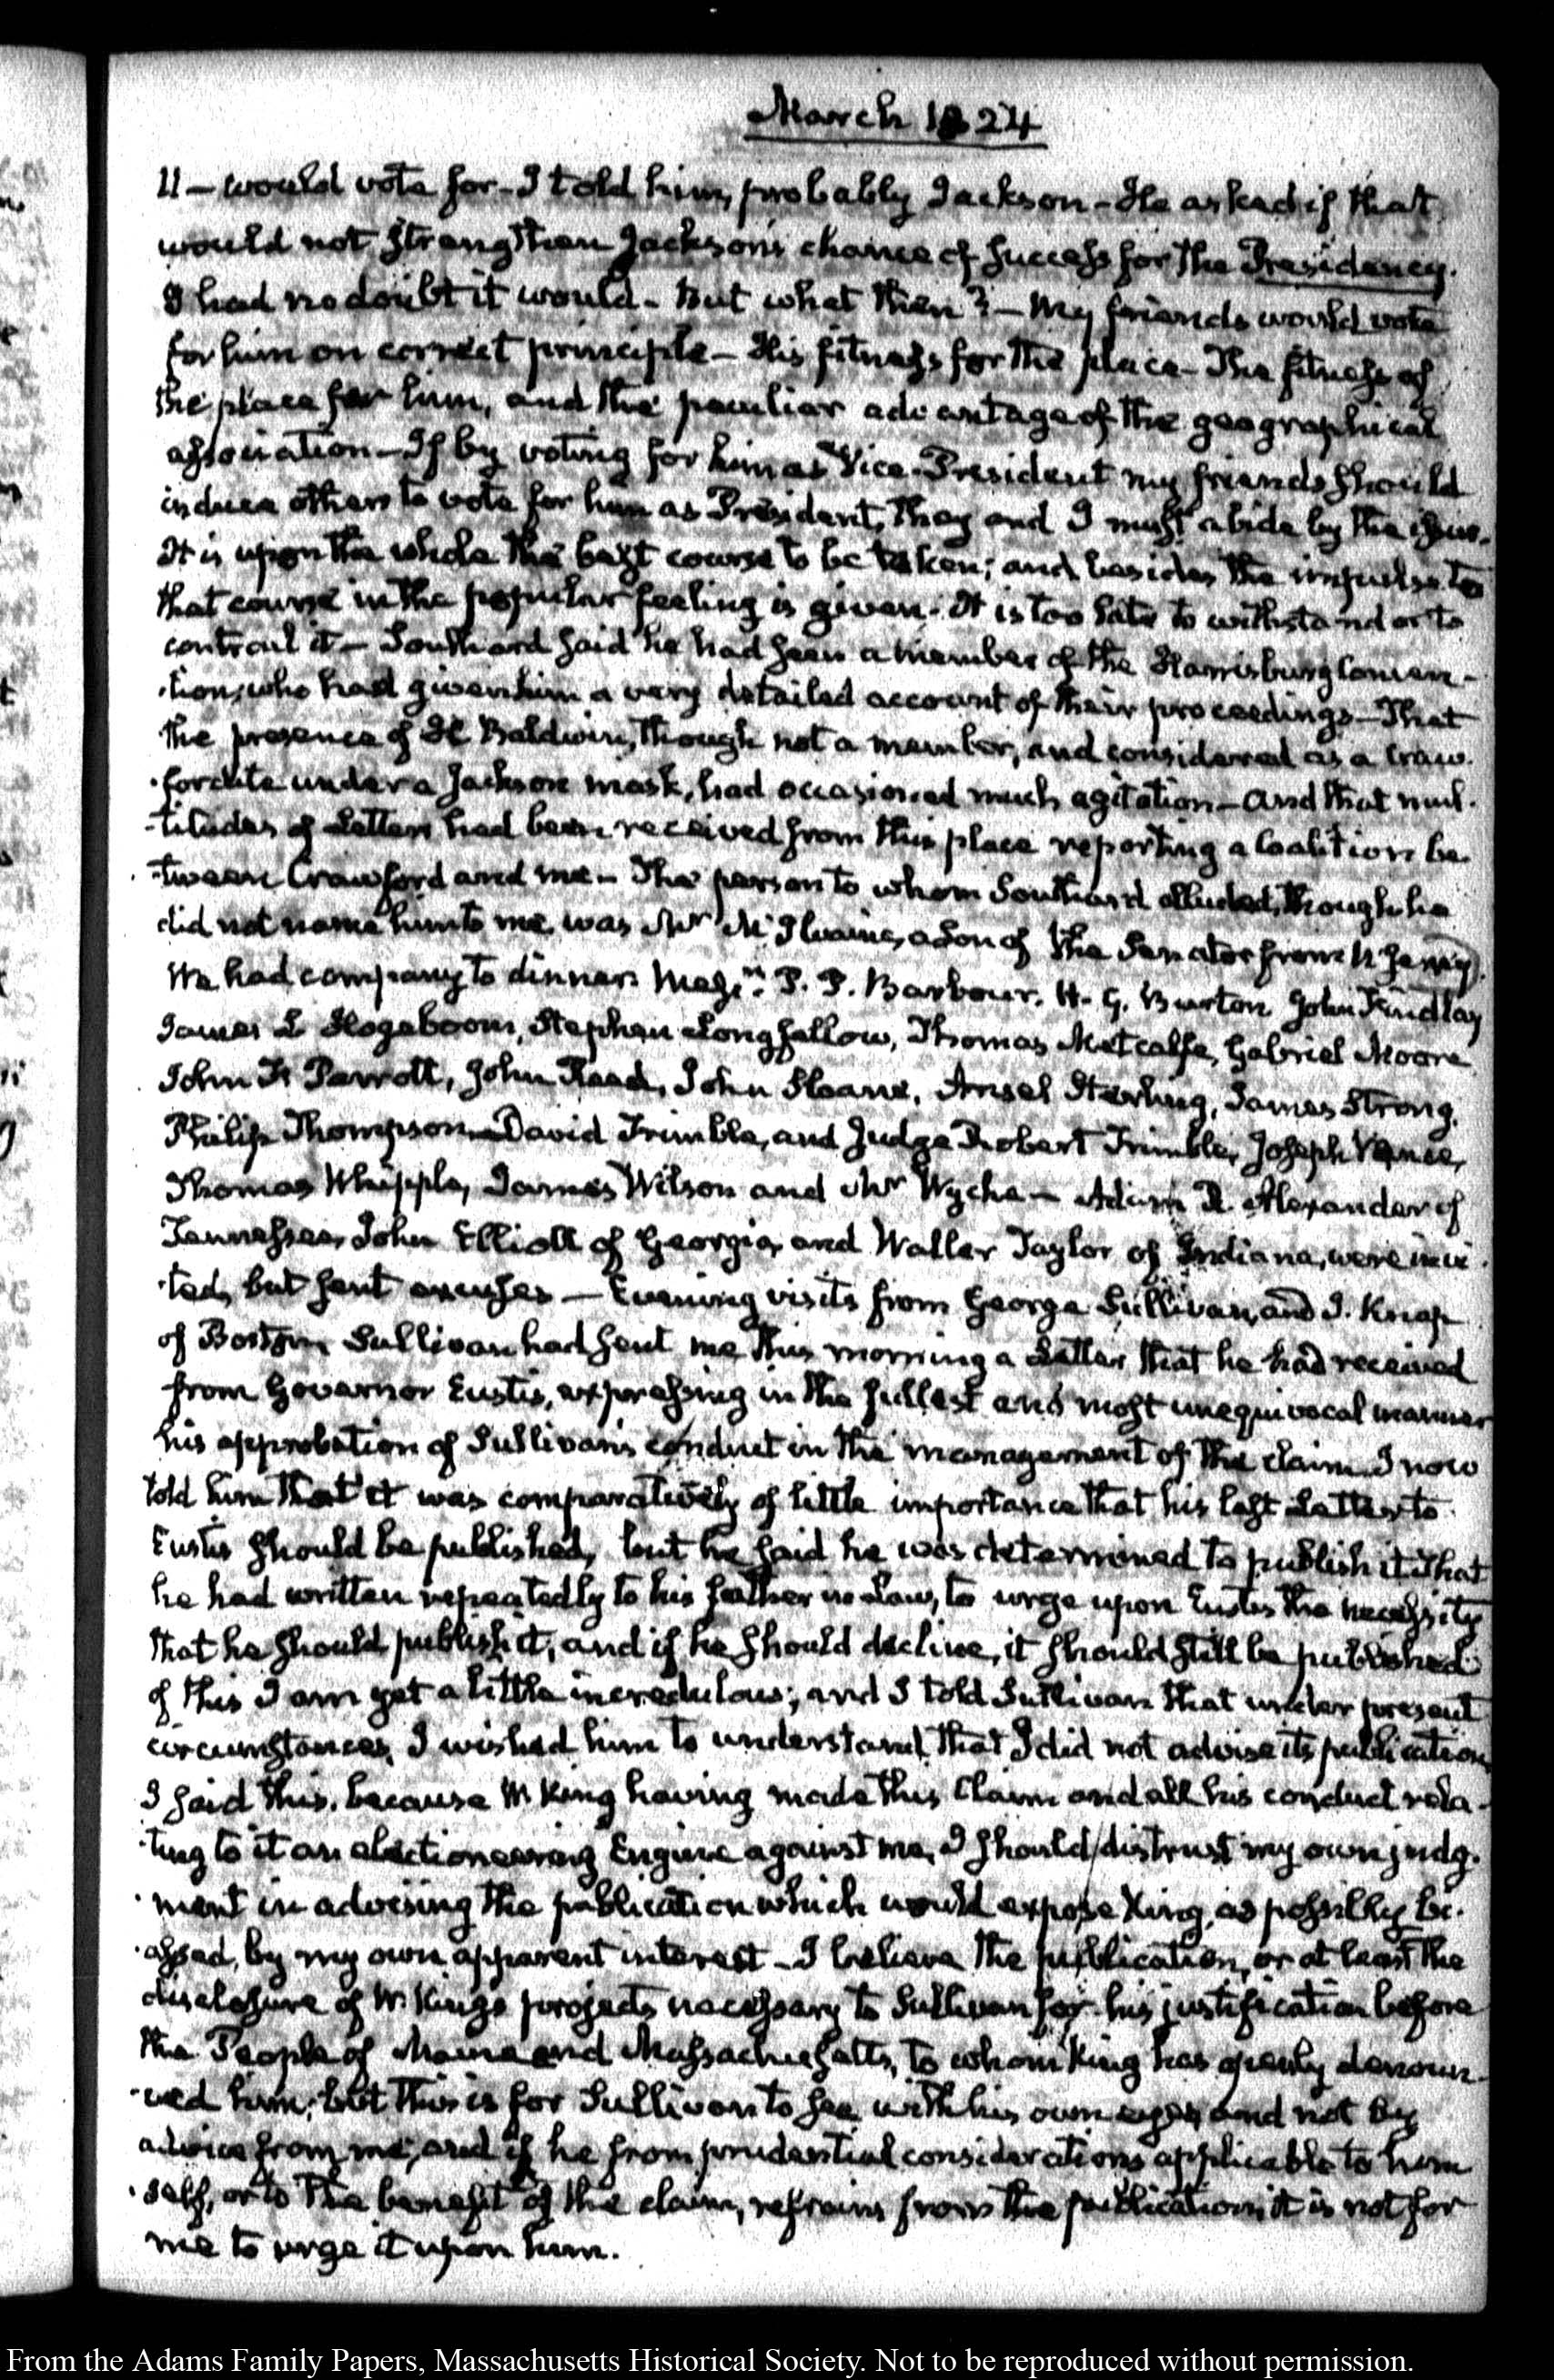 March 1824
11 — would vote for - I told him, probably Jackson - He asked if that
would not strengthen Jackson's chance of success for the Presidency.
I had no doubt it would - But what then? — My friends would vote
for him on correct principle — His fitness for the place - The fitness of
the place for him, and the peculiar advantage of the geographical
association — If by voting for him as Vice-President my friends should
induce others to vote for him as President, they and I must abide by the issue.
It is upon the whole the best course to be taken; and besides the impulse to
that course in the popular feeling is given. It is too late to withstand or to
controul it — Southard said he had seen a member of the Harrisburg Conven-
-tion, who had given him a very detailed account of their proceedings — That
the presence of H Baldwin, though not a member, and considered as a Craw-
-fordite under a Jackson mask, had occasioned much agitation — and that mul-
-titudes of Letters had been received from this place reporting a Coalition be-
-tween Crawford and me — The person to whom Southard alluded, though he
did not name him to me, was Mr McIlvaine, a Son of the Senator from N Jersey.
We had company to dinner. Messrs. P. P. Barbour, H. G. Burton, John Findlay
James L Hogeboom, Stephen Longfellow, Thomas Metcalfe, Gabriel Moore
John F Parrott, John Reed, John Sloane, Ansel Sterling, James Strong,
Philip Thompson, David Trimble, and Judge Robert Trimble, Joseph Vance,
Thomas Whipple, James Wilson and Mr Wyche — Adam R. Alexander of
Tennessee, John Elliott of Georgia, and Waller Taylor of Indiana, were invi-
-ted, but sent excuses — Evening visits from George Sullivan, and J. Knap
of Boston. Sullivan had sent me this morning a Letter that he had received
from Governor Eustis, expressing in the fullest and most unequivocal manner
his approbation of Sullivan's conduct in the management of the claim. I now
told him that it was comparatively of little importance that his last Letter to
Eustis should be published, but he said he was determined to publish it. That
he had written repeatedly to his father in Law, to urge upon Eustis the necessity
that he should publish it, and if he should decline, it should still be published
of this I am yet a little incredulous; and I told Sullivan that under present
circumstances, I wished him to understand that I did not advise its publication
I said this, because W. King having made this Claim and all his conduct rela-
-ting to it an electioneering Engine against me, I should distrust my own judg-
-ment in advising the publication which would expose King, as possibly bi-
-assed, by my own apparent interest — I believe the publication, or at least the
disclosure of W. King's projects necessary to Sullivan for his justification before
the People of Maine and Massachusetts, to whom King has openly denoun-
-ced him; but this is for Sullivan to see with his own eyes, and not by
advice from me; and if he from prudential considerations applicable to him
-self, or to the benefit of the claim, refrains from the publication, it is not for
me to urge it upon him.
From the Adams Family Papers, Massachusetts Historical Society. Not to be reproduced without permission.